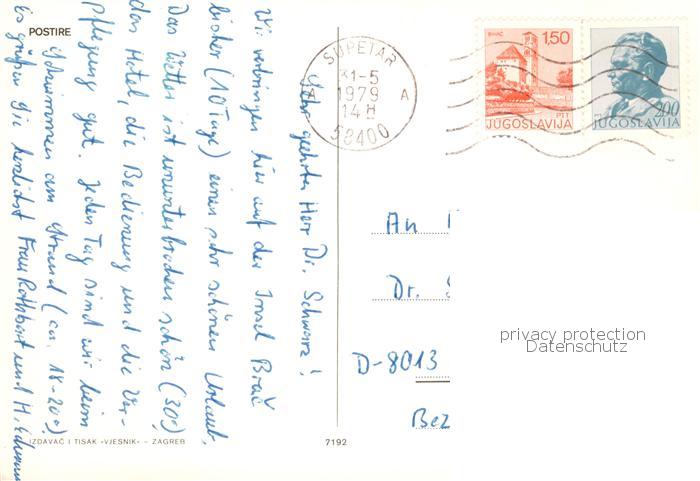 POSTIRE
Sehr geehrter Herr Dr. Schwarz!
Wir verbringen hier auf der Insel Brač
bisher (10 Tage) einen sehr schönen Urlaub.
Das Wetter ist ununterbrochen schön (30°)
das Hotel, die Bedienung und die Ver-
pflegung gut. Jeden Tag sind wir beim
Schwimmen am Strand (ca. 18-20°)
Es grüßen Sie herzlichst Frau Rothbart und H.
IZDAVAČ I TISAK «VJESNIK» – ZAGREB
7192
SUPETAR
31-5
1979
14 H
A
58400
BIHAĆ
1,50
PTT
JUGOSLAVIJA
2,00
JUGOSLAVIJA
An
Dr.
D-8013
privacy protection
Datenschutz